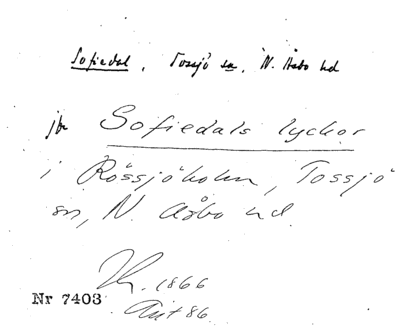 Sofiedal, Tossjö sn, N. Åsbo hd
jfr Sofiedals lyckor
i Rössjöholm, Tossjö
sn, N. Åsbo hd.
1866
Nr 7403
86.